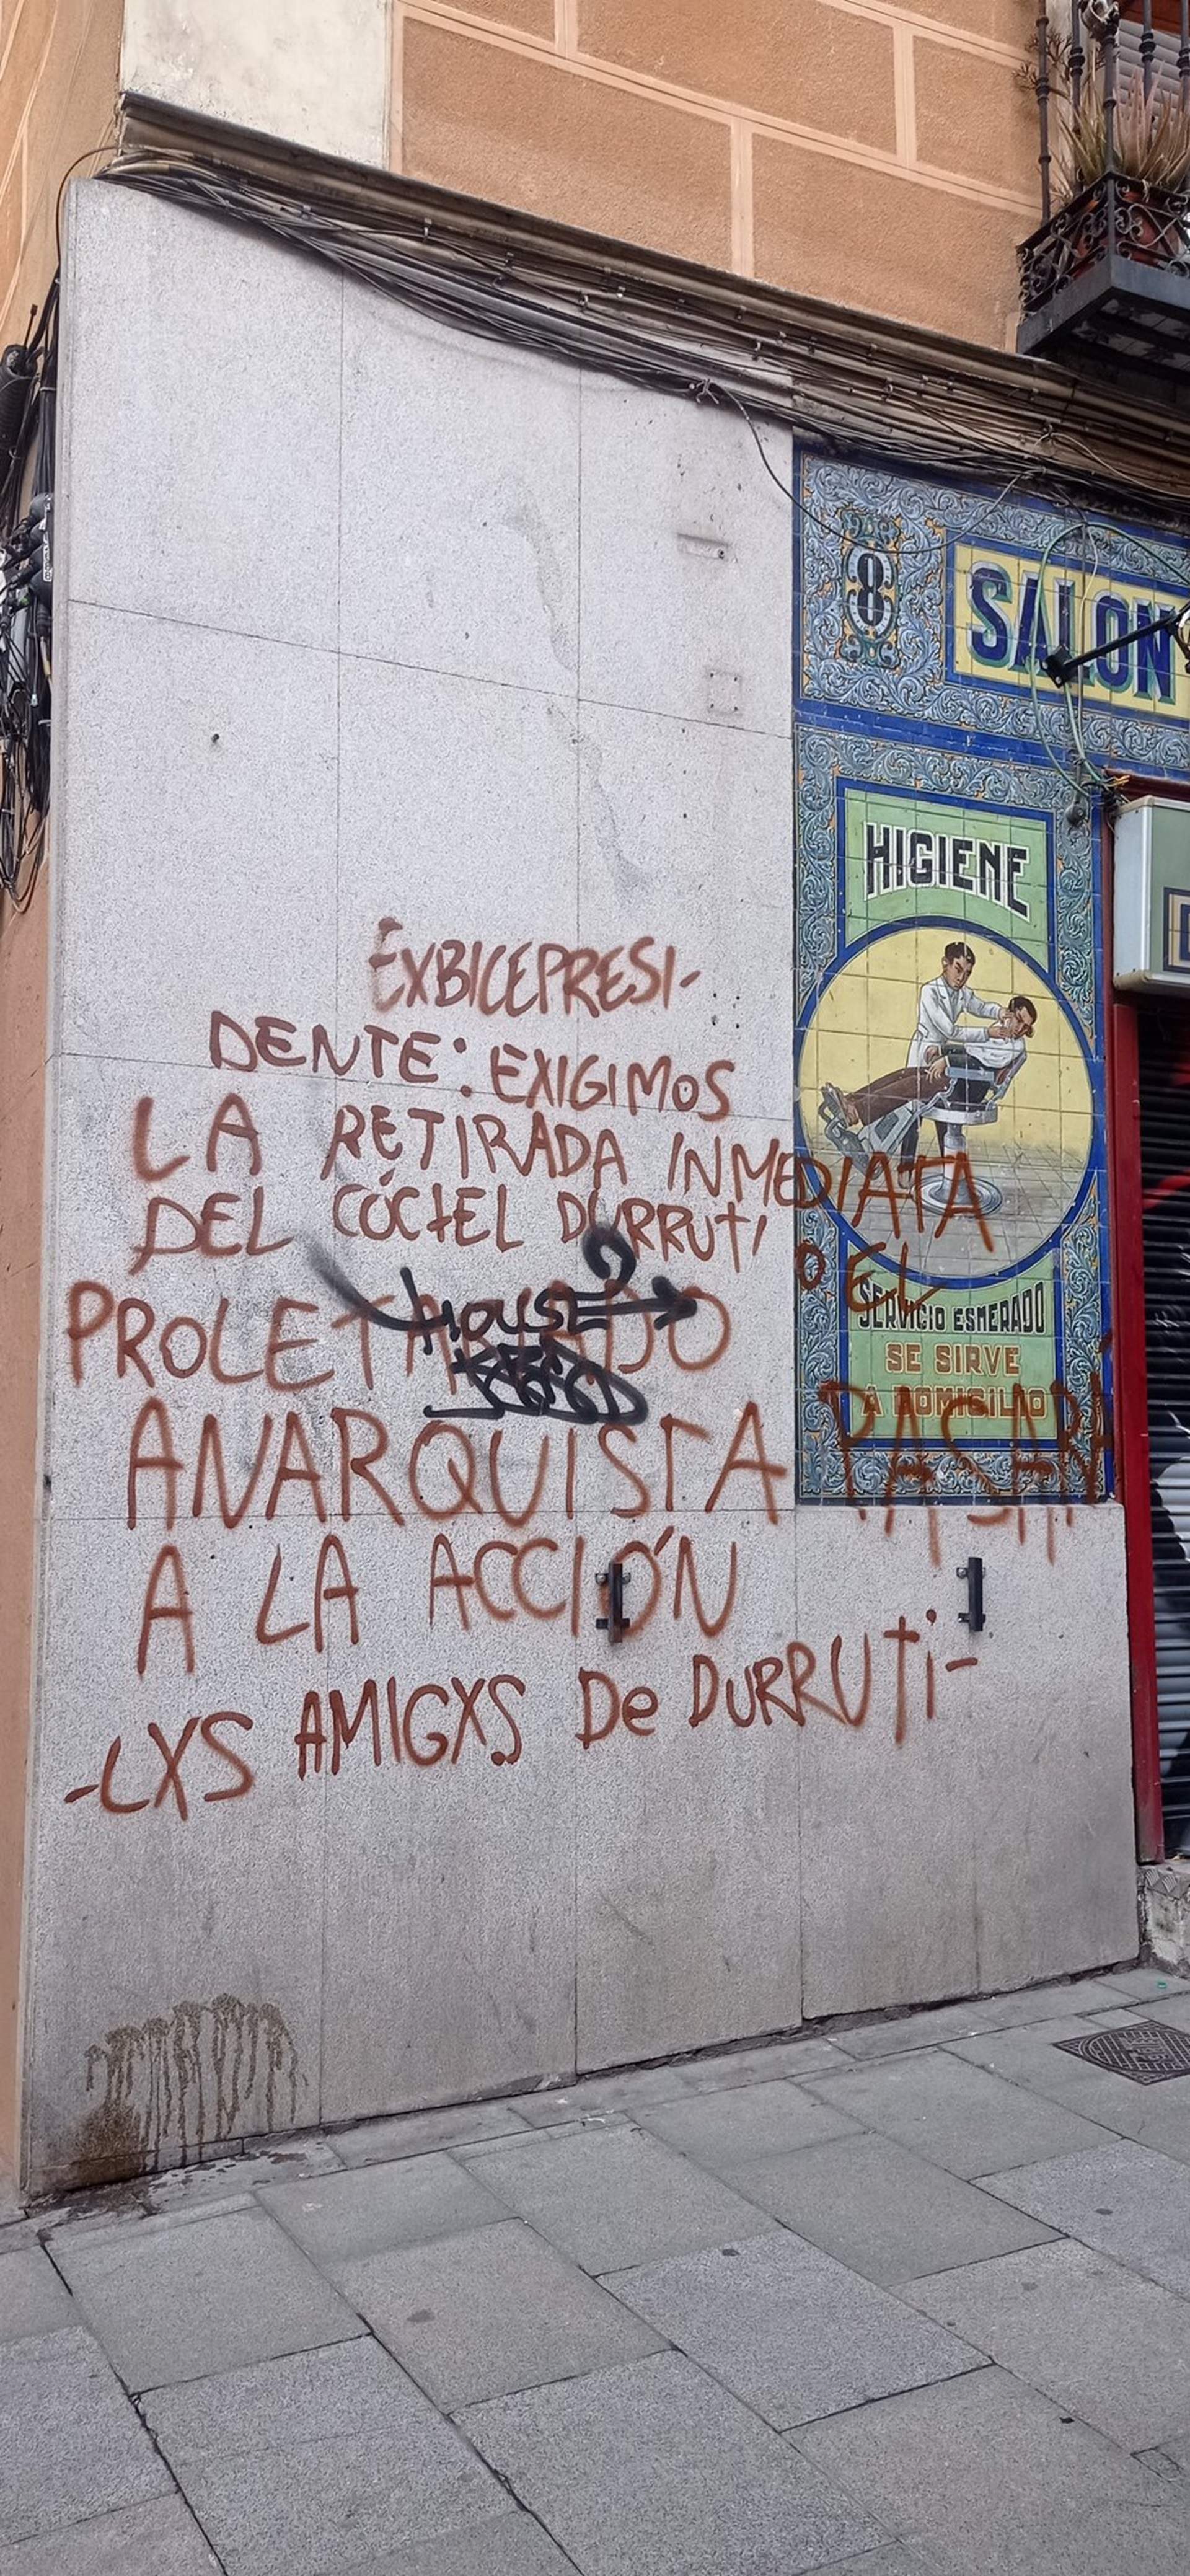 8
SALON
HIGIENE
SERVICIO ESMERADO
SE SIRVE
A DOMICILIO
EXBICEPRESI-
DENTE: EXIGIMOS
LA RETIRADA INMEDIATA
DEL CÓCTEL DURRUTI O EL
PROLETARIADO
ANARQUISTA PASARÁ
A LA ACCIÓN
-LXS AMIGXS De DURRUTi-
HOUSE